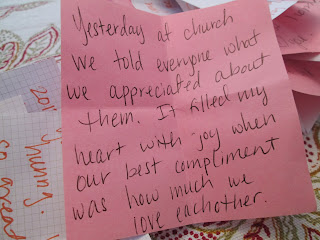 Yesterday at church
we told everyone what
we appreciated about
them. It filled my
heart with joy when
our best compliment
was how much we
love eachother.
201